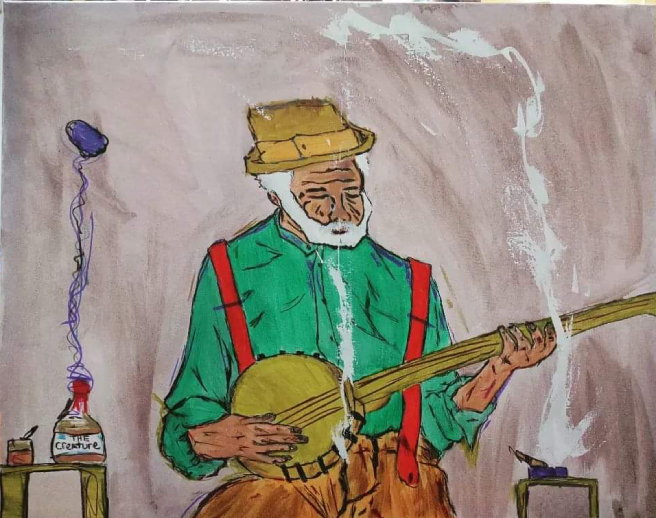 THE
CREATURE